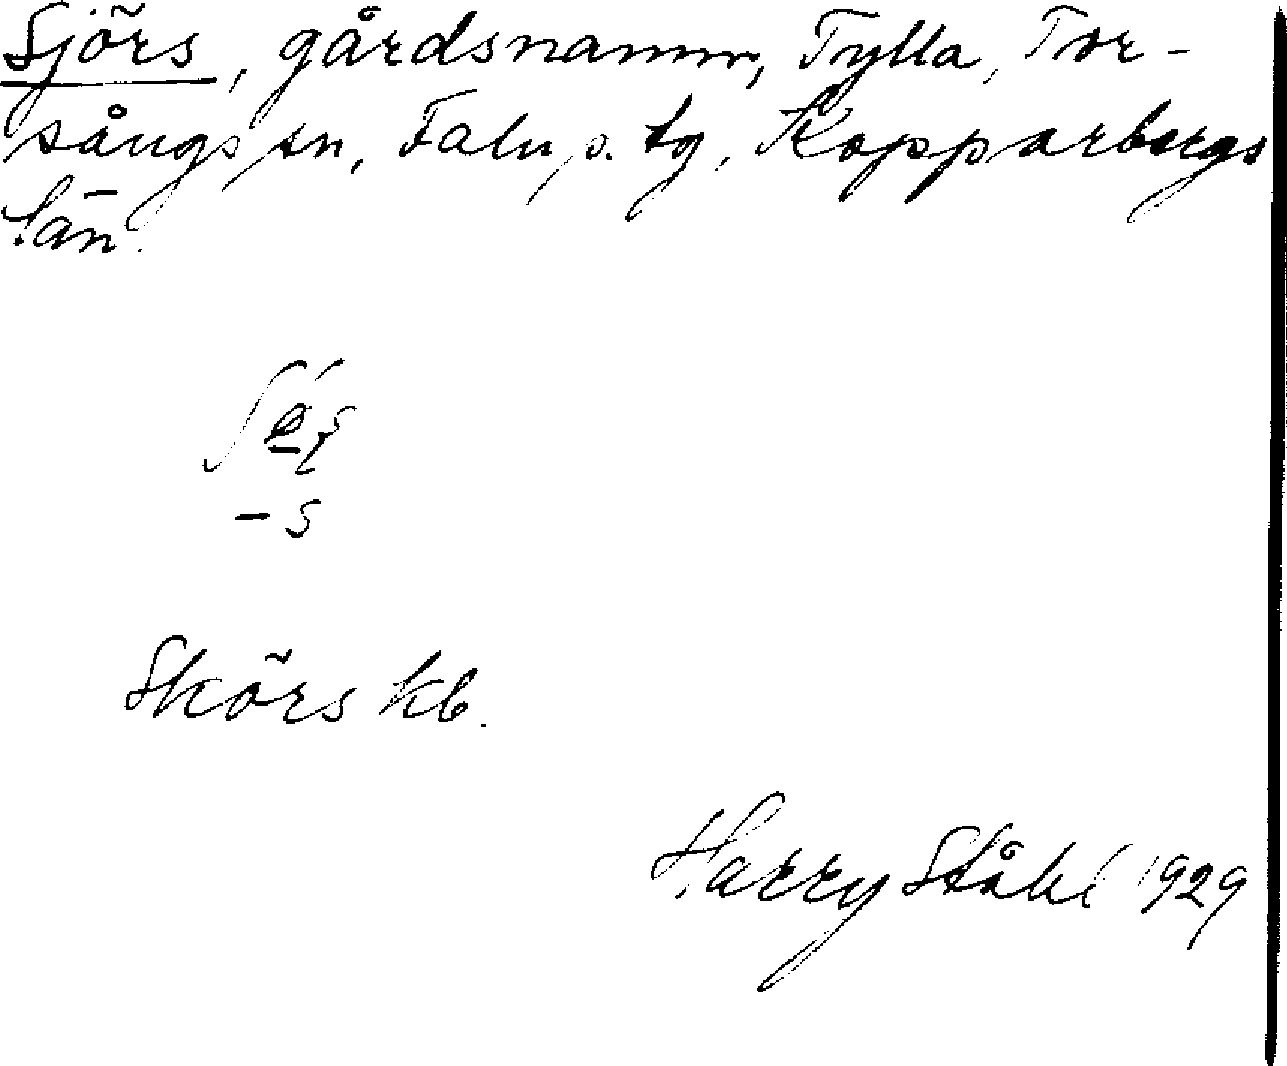 Sjörs, gårdsnamn, Tylla, Tor-
sångs sn, Falu s. tg, Kopparbergs
län.
-s
Skörs kb.
Harry Ståhl 1929